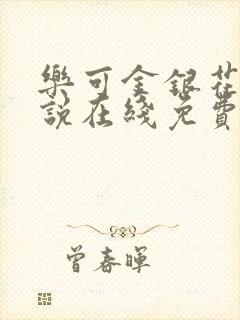 樂可金銀花
說在綫免費
曾春暉